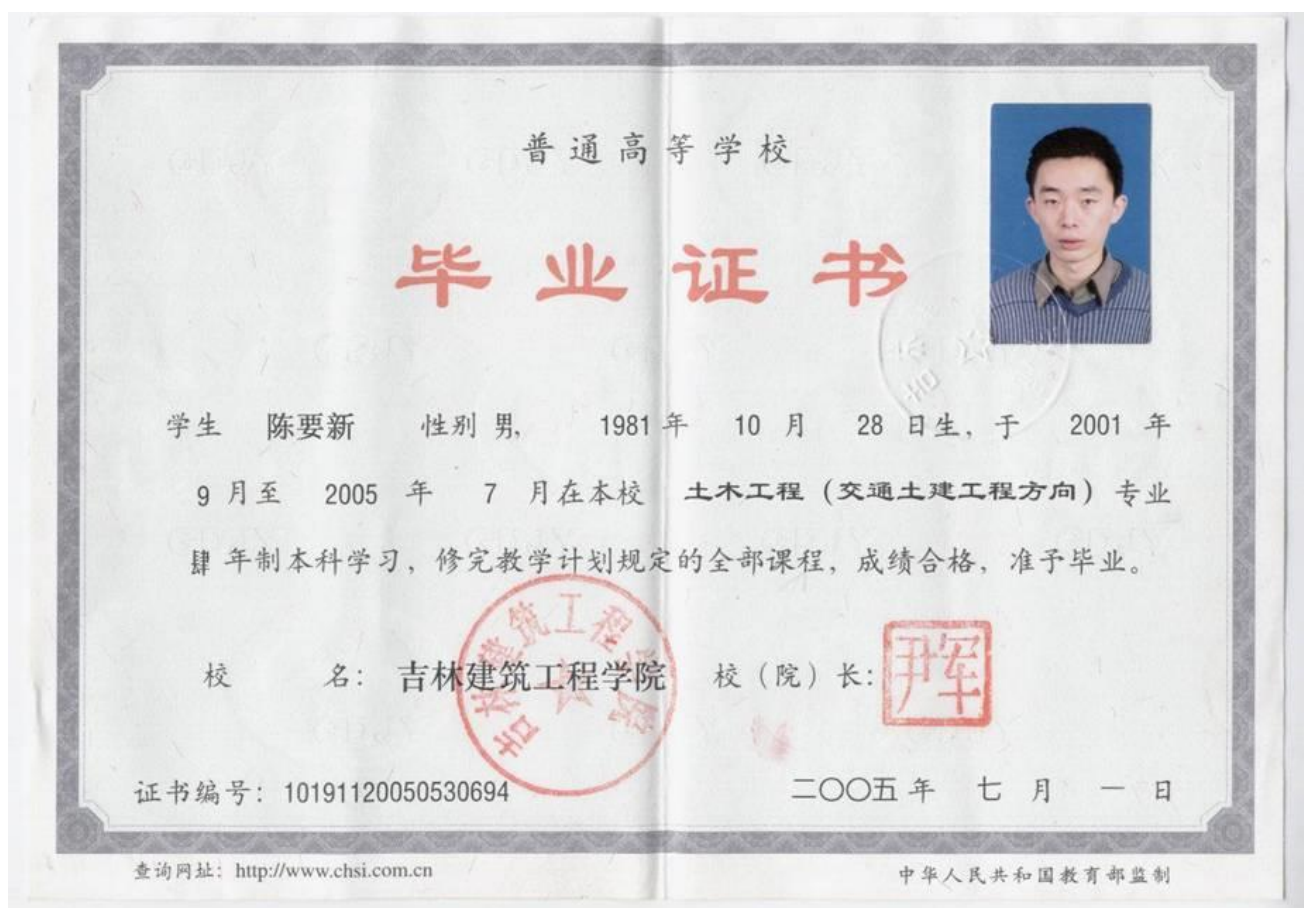 普通高等学校
毕业证书
学生 陈要新 性别 男, 1981 年 10 月 28 日生, 于 2001 年
9 月至 2005 年 7 月在本校 土木工程（交通土建工程方向）专业
肆 年制本科学习, 修完教学计划规定的全部课程, 成绩合格, 准予毕业。
校 名: 吉林建筑工程学院 校（院）长: 尹军
吉林建筑工程学院
证书编号: 101911200505530694
二〇〇五年 七 月 一 日
查询网址: http://www.chsi.com.cn
中华人民共和国教育部监制